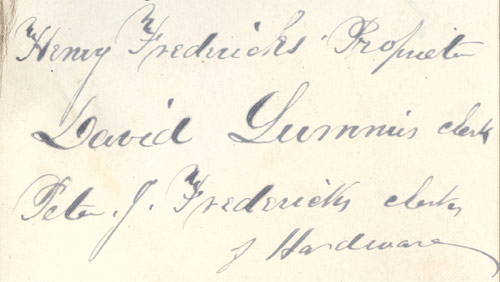 Henry Fredericks Proprietor
David Lummis clerk
Peter J. Fredericks clerk
of Hardware